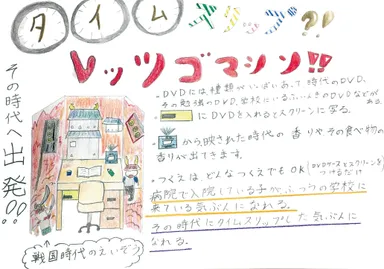 タイムマシン?!
レッツゴマシン!!
その時代へ出発!!
・DVDには種類がいっぱいあって時代のDVD、
その勉強のDVD、学校というふんいきのDVDなどがある。
・にDVDを入れるとスクリーンに写る。
・から映された時代の香りやその食べ物の
香りが出てきます。
・つくえは、どんなつくえでもOK(DVDデッキとスクリーンをつけるだけ)
病院で入院している子が、ふつうの学校に
来ている気ぶんになれる。
その時代にタイムスリップした気ぶんに
なれる。
戦国時代のえいぞう